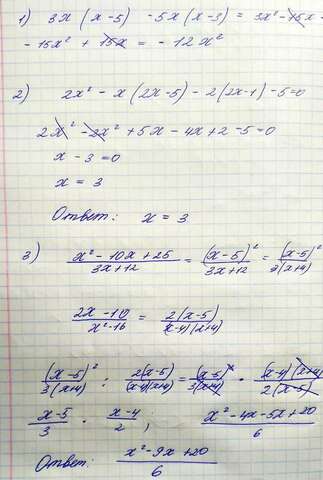 1) 3x (x-5) - 5x (x-3) = 3x² - 15x -
- 15x² + 15x = - 12x²
2) 2x² - x (2x-5) - 2(2x-1) - 5=0
2x² - 2x² + 5x - 4x + 2 - 5 = 0
x - 3 = 0
x = 3
Ответ: x = 3
3) (x² - 10x + 25)/(3x+12) = (x-5)²/(3x+12) = (x-5)²/(3(x+4))
(2x - 10)/(x²-16) = 2(x-5)/((x-4)(x+4));
(x-5)²/(3(x+4)) : 2(x-5)/((x-4)(x+4)) = (x-5)²/(3(x+4)) · (x-4)(x+4)/(2(x-5))
(x-5)/3 · (x-4)/2 ; (x² - 4x - 5x + 20)/6
Ответ: (x² - 9x + 20)/6